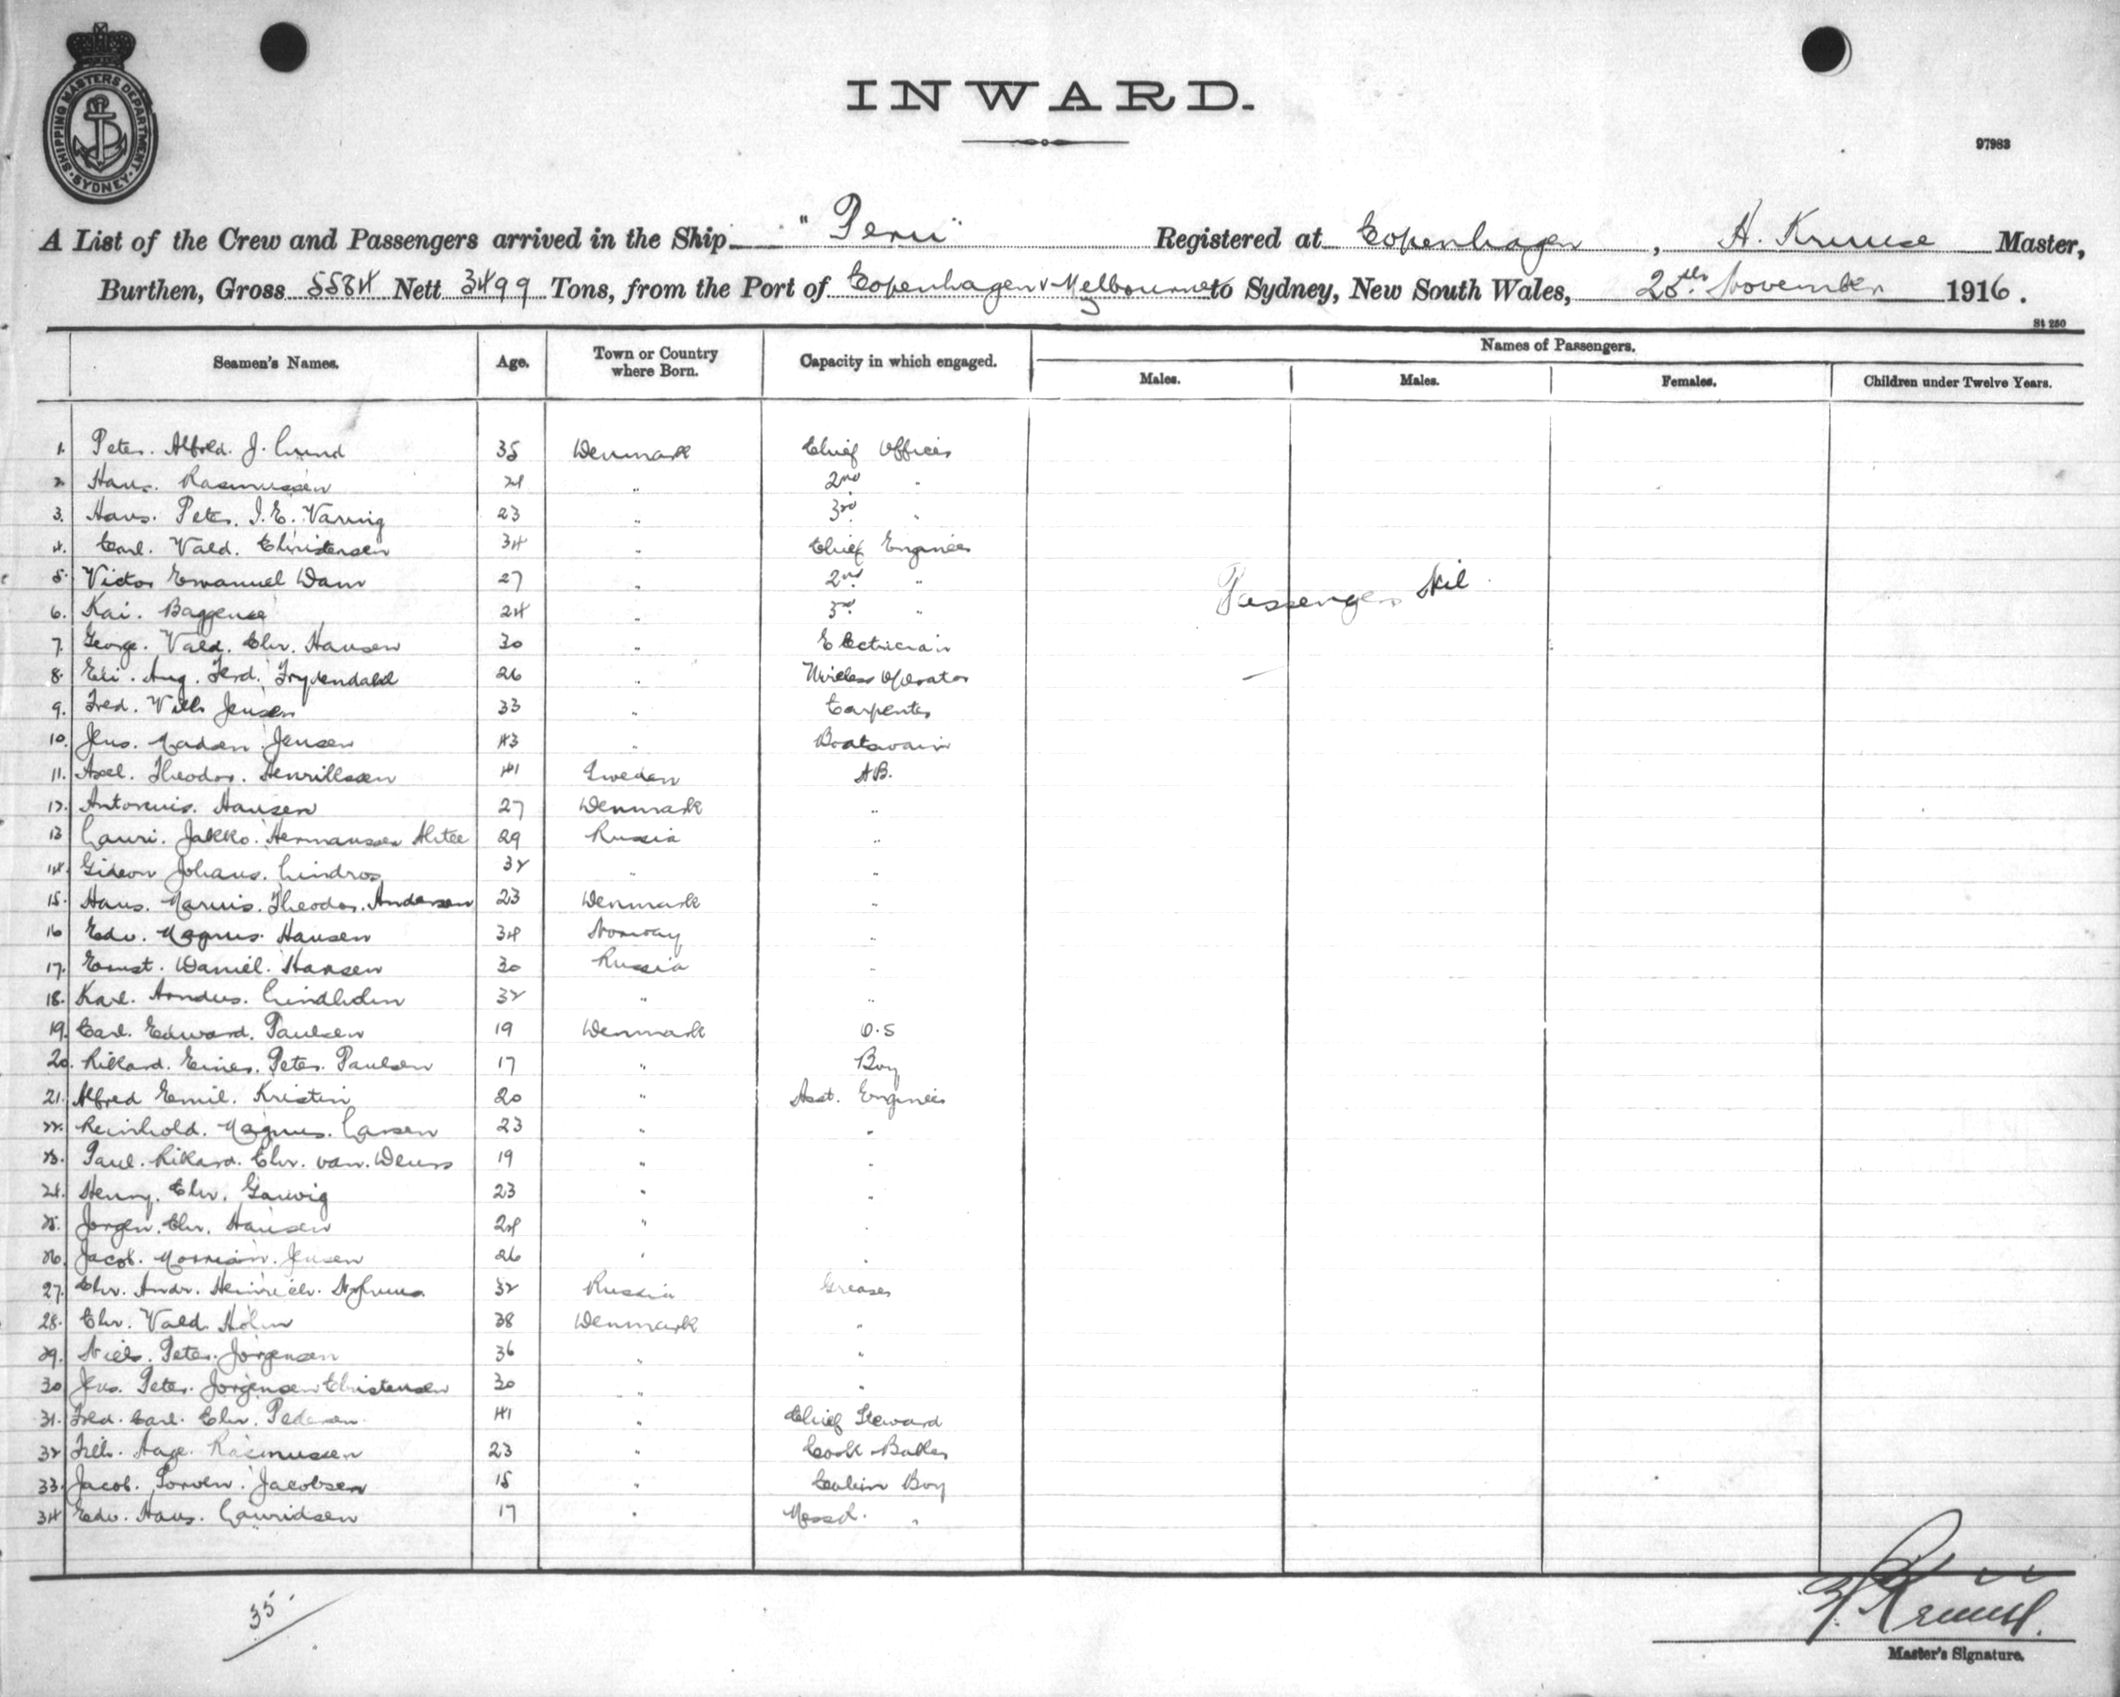 SHIPPING MASTERS DEPARTMENT · SYDNEY ·
INWARD.
97983
A List of the Crew and Passengers arrived in the Ship "Peru" Registered at Copenhagen, H. Kruuse Master,
Burthen, Gross 5584 Nett 3499 Tons, from the Port of Copenhagen v Melbourne to Sydney, New South Wales, 28th November 1916.
St 250
Seamen's Names. Age. Town or Country where Born. Capacity in which engaged. Names of Passengers.
Males. Males. Females. Children under Twelve Years.
1. Peter. Alfred. J. Lund 35 Denmark Chief Officer
2. Hans. Rasmussen 24 " 2nd "
3. Hans. Peter. J. E. Varing 23 " 3rd "
4. Carl. Vald. Christensen 34 " Chief Engineer
5. Victor Emanuel Dam 27 " 2nd "
Passengers Nil
6. Kai. Baggense 24 " 3rd "
7. George. Vald. Chr. Hansen 30 " Electrician
8. Eli. Aug. Ferd. Frydendahl 26 " Wireless Operator
9. Fred. Vilh Jensen 33 " Carpenter
10. Jens. Madsen Jensen 43 " Boatswain
11. Axel. Theodor. Henrikssen 41 Sweden AB.
12. Antonius. Hansen 27 Denmark "
13 Lauri. Jakko. Hermanssen 29 Russia "
14. Gideon Johans. Lindros 32 " "
15. Hans. Marius. Theodor. Andersen 23 Denmark "
16 Edv. Magnus. Hansen 34 Norway "
17. Ernst. Daniel. Hansen 30 Russia "
18. Karl. Lindholm 32 " "
19. Carl. Edward. Paulsen 19 Denmark O.S
20. Rikard. Einer. Peter. Paulsen 17 " Boy
21. Alfred Emil. Kristin 20 " Asst. Engineer
22. Reinhold. Magnus. Larsen 23 " "
23. Paul. Rikard. Chr. van. Deurs 19 " "
24. Henry. Chr. Garvig 23 " "
25. Jorgen. Chr. Hansen 24 " "
26. Jacob. Jensen 26 " "
27. Chr. Andr. Heinrich. 32 Russia Greaser
28. Chr. Vald. Holm 38 Denmark "
29. Niels. Peter. Jorgensen 36 " "
30 Jens. Peter. Jorgensen Christensen 30 " "
31. Fred. Carl. Chr. Pedersen. 41 " Chief Steward
32 Aage. Rasmussen 23 " Cook Baker
33. Jacob. Jacobsen 15 " Cabin Boy
34 Edv. Hans. Lauridsen 17 " "
35.
H Kruuse.
Master's Signature.